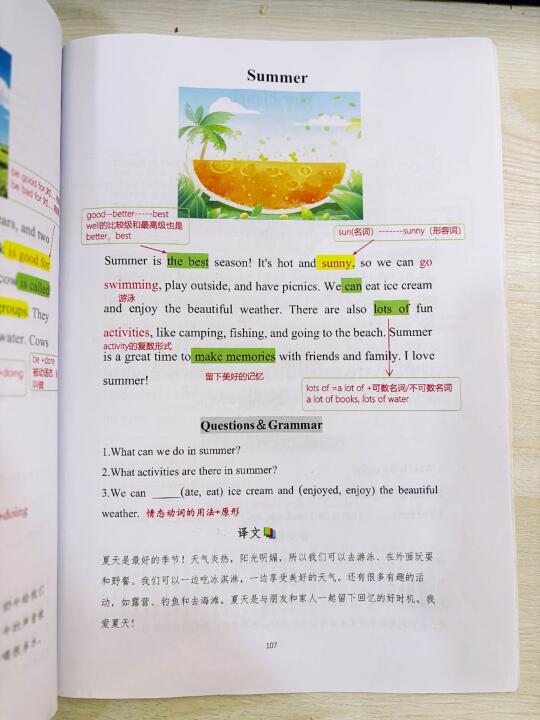 Summer
good--better-----best
well的比较级和最高级也是
better，best
sun(名词）-------sunny（形容词）
Summer is the best season! It's hot and sunny, so we can go
swimming, play outside, and have picnics. We can eat ice cream
游泳
and enjoy the beautiful weather. There are also lots of fun
activities, like camping, fishing, and going to the beach. Summer
activity的复数形式
is a great time to make memories with friends and family. I love
留下美好的记忆
summer!
lots of =a lot of +可数名词/不可数名词
a lot of books, lots of water
Questions＆Grammar
1.What can we do in summer?
2.What activities are there in summer?
3.We can _____(ate, eat) ice cream and (enjoyed, enjoy) the beautiful
weather. 情态动词的用法+原形
译文
夏天是最好的季节！天气炎热，阳光明媚，所以我们可以去游泳、在外面玩耍
和野餐。我们可以一边吃冰淇淋，一边享受美好的天气。还有很多有趣的活
动，如露营、钓鱼和去海滩。夏天是与朋友和家人一起留下回忆的好时机。我
爱夏天！
107
be good for对
be bad for对
ears, and two
is good for
cow is called
groups. They
water. Cows
be +done
被动语态
叫做
+doing
奶牛给我们
牛的声音被
喝很多水。